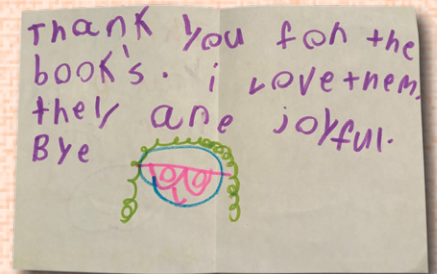 Thank you fon the
book's. i love them.
they ane joyful.
Bye